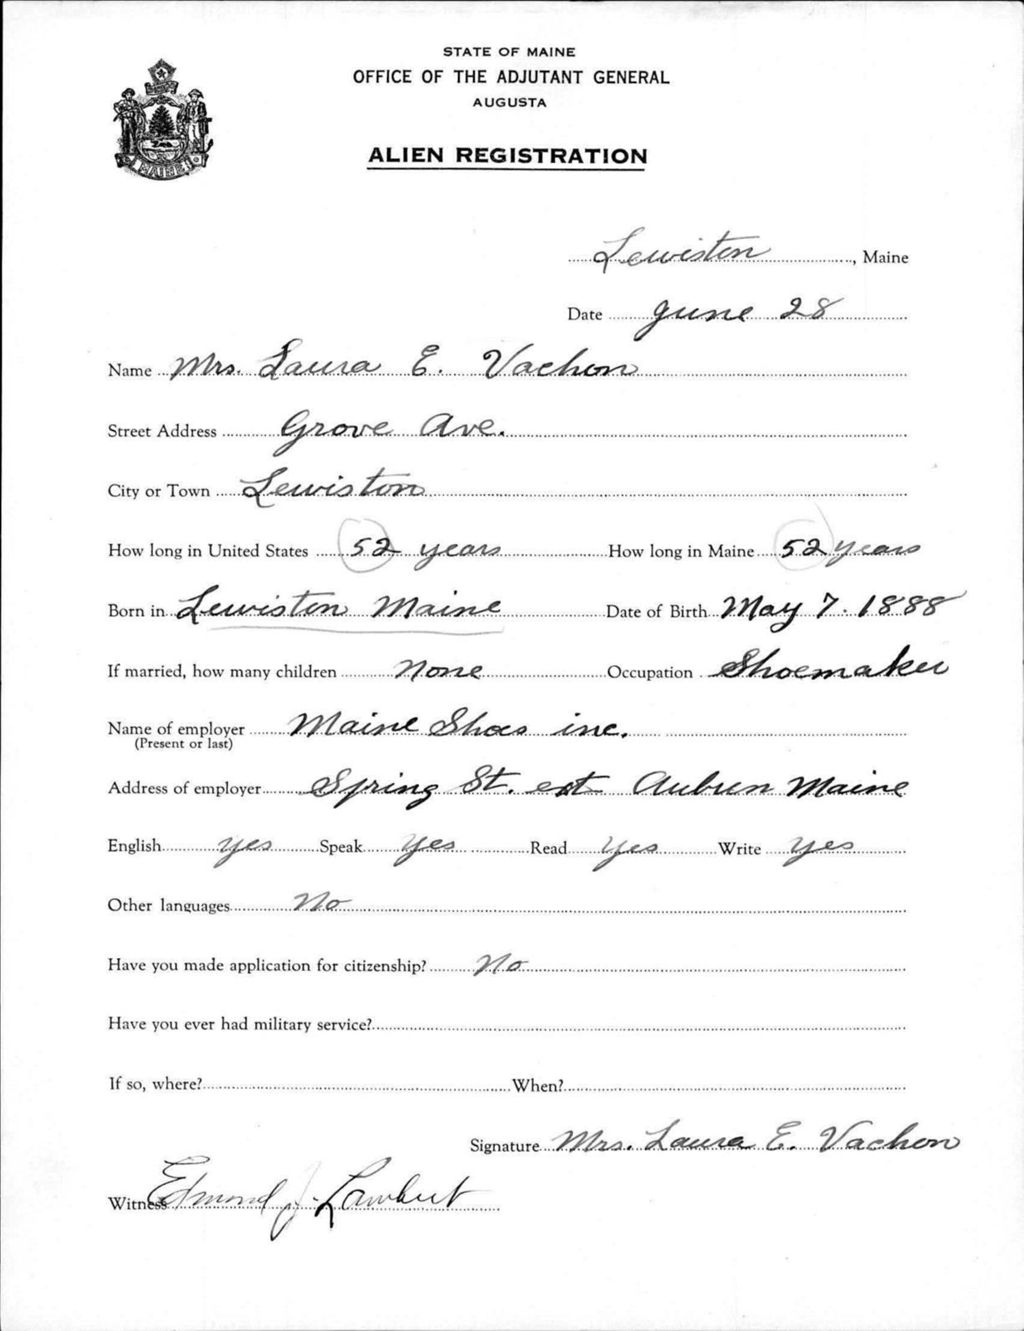 STATE OF MAINE
OFFICE OF THE ADJUTANT GENERAL
AUGUSTA
ALIEN REGISTRATION
MAINE
Lewiston, Maine
Date June 28
Name Mrs. Laura E. Vachon
Street Address Grove Ave.
City or Town Lewiston
How long in United States 52 years How long in Maine 52 years
Born in Lewiston Maine Date of Birth May 7. 1888
If married, how many children None Occupation Shoemaker
Name of employer Maine Shoes inc.
(Present or last)
Address of employer Spring St. ext Auburn Maine
English yes Speak Yes Read Yes Write Yes
Other languages No
Have you made application for citizenship? No
Have you ever had military service?
If so, where? When?
Signature Mrs. Laura E. Vachon
Witness Edmond J. Lambert